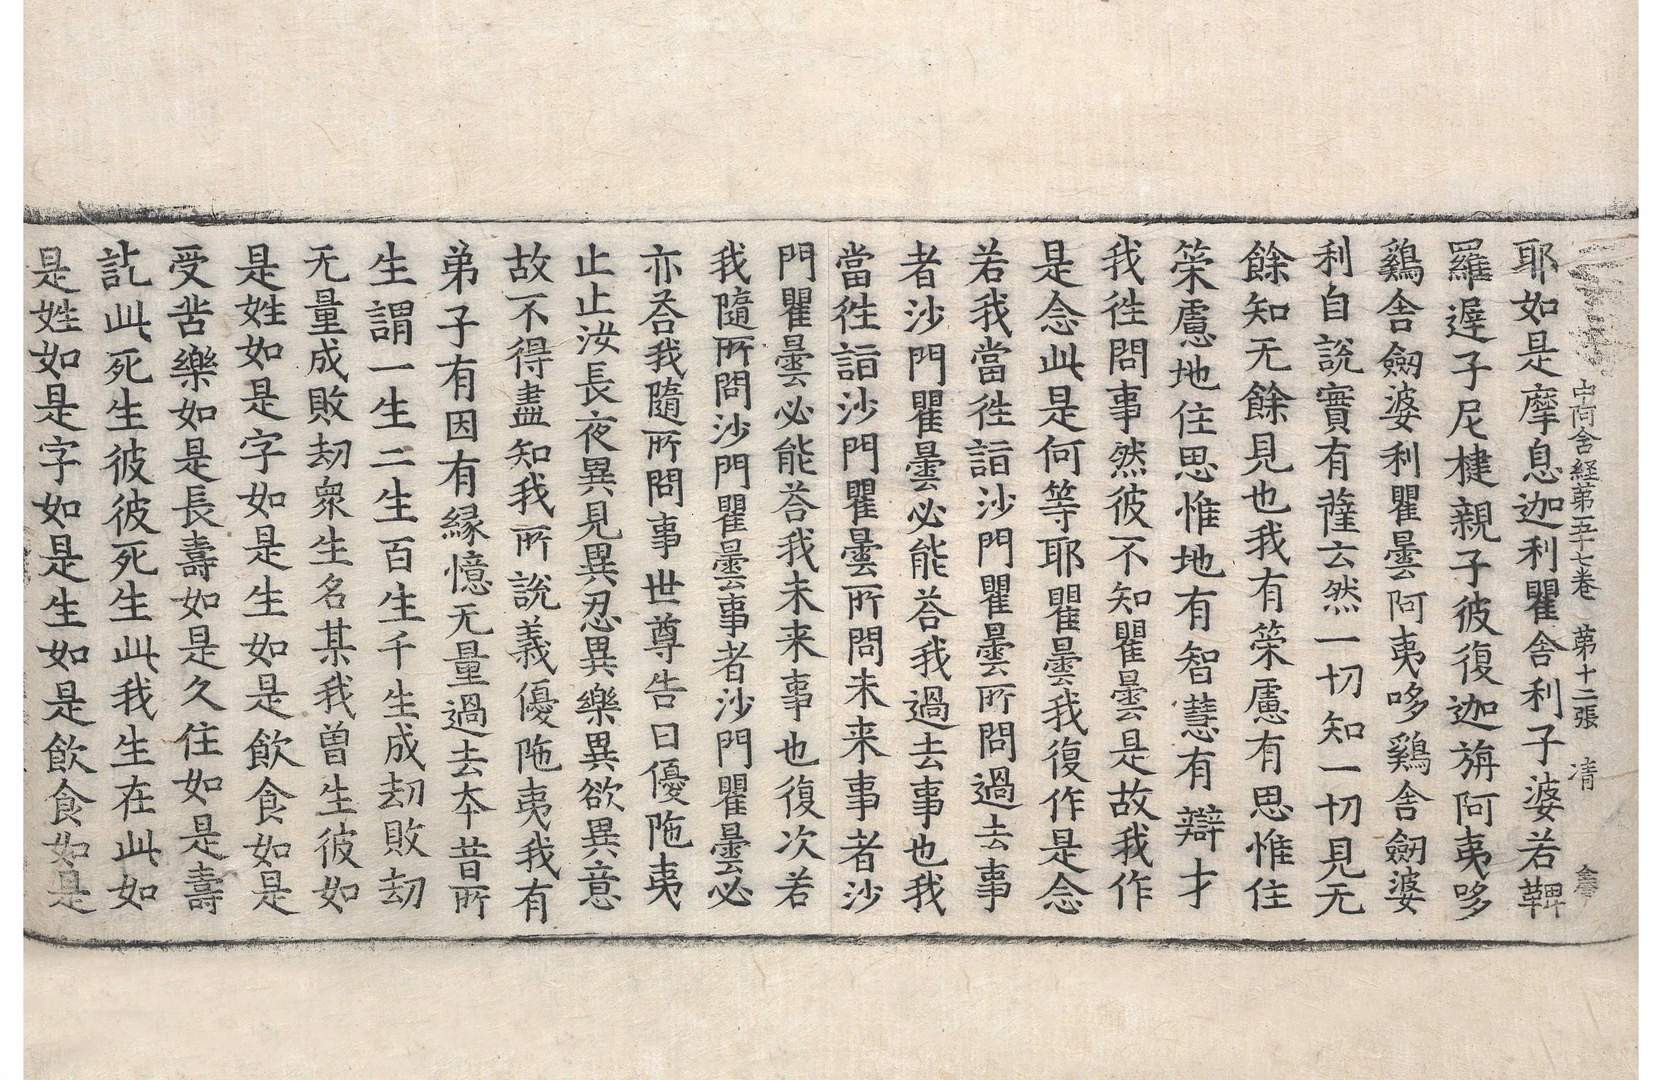 中阿含経第五十七巻 第十二張 清
耶如是摩息迦利瞿舍利子婆若鞞
羅遟子尼揵親子彼復迦旃阿夷哆
鷄舍劔婆利瞿曇阿夷哆鷄舍劔婆
利自說實有薩云然一切知一切見无
餘知无餘見也我有策慮有思惟住
策慮地住思惟地有智慧有辯才
我徃問事然彼不知瞿曇是故我作
是念此是何等耶瞿曇我復作是念
若我當徃詣沙門瞿曇所問過去事
者沙門瞿曇必能荅我過去事也我
當徃詣沙門瞿曇所問未来事者沙
門瞿曇必能荅我未来事也復次若
我隨所問沙門瞿曇事者沙門瞿曇必
亦荅我隨所問事世尊告曰優陁夷
止止汝長夜異見異忍異樂異欲異意
故不得盡知我所說義優陁夷我有
弟子有因有縁憶无量過去本昔所
生謂一生二生百生千生成劫敗劫
无量成敗劫衆生名某我曾生彼如
是姓如是字如是生如是飲食如是
受苦樂如是長壽如是久住如是壽
訖此死生彼彼死生此我生在此如
是姓如是字如是生如是飲食如是